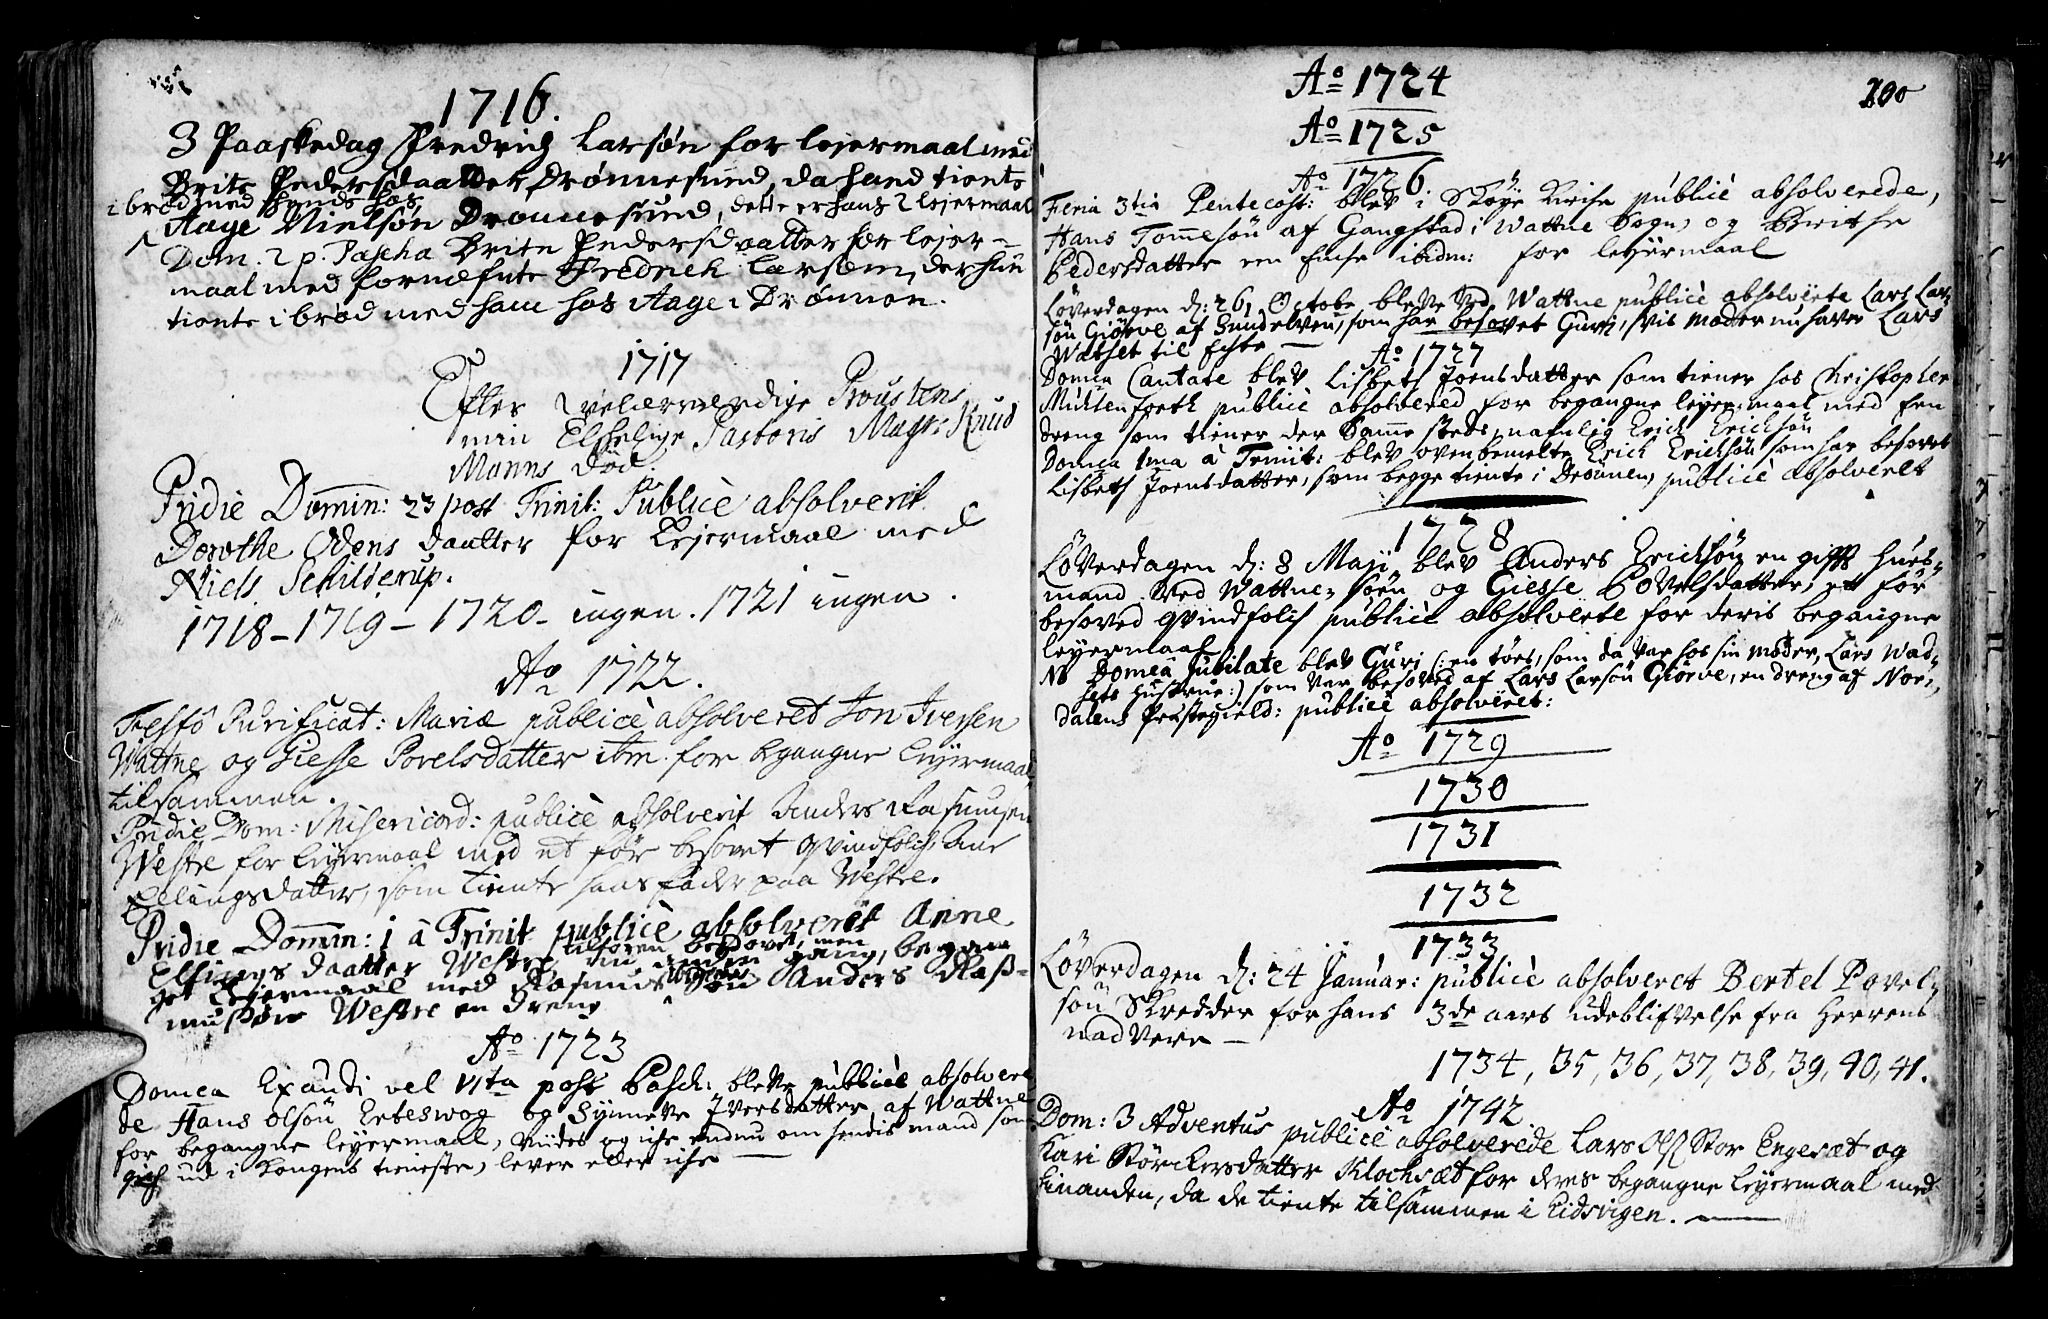 1716.
3 Paaskedag Fredrich Larsøn for lejermaal med
Brite Pedersdaatter Drønnesund, da hand tiente
i brød med hende hos
Aage Nielsøn Drønnesund, dette er hans 2 lejermaal
Dom. 2 p. Pascha Brite Pedersdaatter for lejer-
maal med fornæfnte Fredrich Larsøn, der hun
tiente i brød med ham hos Aage i Drønnen.
1717
Efter velærværdige Proustens
min Elskelige Pastoris Magr: Knud
Manns død.
Pridie Domin: 23 post Trinit: Publicè absolverit
Dorothe Odens daatter for Lejermaal med
Niels Schilderup.
1718 - 1719 - 1720 - ingen. 1721 ingen.
Ao 1722.
Festo Purificat: Mariæ publicè absolveret Jon Iversen
Wattne og Giesse Povelsdatter ibm. for begangne Leyermaal
tilsammen.
Pridie Dom: Misericord: publicè absolverit Anders Rasmusen
Westre for Leyermaal med et før besovet qvindfolch, Ane
Ellingsdatter, som tiente hans fader paa Westre.
Pridie Domin: 1 à Trinit publicè absolveret Anne
Ellings daatter Westre, tilforen besovet, men
nu anden gang, began
get Lejermaal med Rasmus Søn Anders Rass-
musøn Westre en Dreng
Ao 1723
Domca Exaudi vel VIta post Pasch: bleve publicè absolvere
de Hans Olsøn Ertesvog og Synneve Iversdatter af Wattne
for begangne leyermaal, viides og iche endnu om hendis mand som
gich ud i Kongens tieneste, lever eller iche
200
Ao 1724
Ao 1725
Ao 1726.
Feria 3tia Pentecost: blev i Skoye Kirke publicè absolverede,
Hans Tommesøn af Gangstad i Wattne Sogn, og Brithe
Pedersdatter en Enke ibidm: for leyermaal
Løverdagen d: 26 Octobr bleve ved Wattne publicè absolverte Lars Lar-
søn Giørve af Sundelven, som har besovet Guri, hvis moder nu haver Lars
Watset til Echte
Ao 1727
Domca Cantate blev Lisbeth Joensdatter som tiener hos Christopher
publicè absolvered for begangne leyermaal med een
dreng som tiener der samme steds, namlig Erich Erichsøn
Domca 1ma à Trinit: blev ovenbemelte Erich Erichsøn som har besovet
Lisbeth Joensdatter, som begge tiente i Drønnen, publicè absolveret
1728
Løverdagen d: 8 Maji blev Anders Erichsøn en gifft huus-
mand ved Wattne-søen og Giesse Povelsdatter, et før
besoved qvindfolch publicè absolverte for deris begangne
leyermaal
NB Domca Jubilate blev Guri (: en tøes, som da var hos sin moder, Lars Wad-
sets hustrue :) som var besoved af Lars Larsøn Giørve, en dreng af Nor-
dalens Præstegield: publicè absolveret:
Ao 1729
1730
1731
1732
1733
Løverdagen d: 24 Januar: publicè absolveret Bertel Povel-
søn Skredder for hans 3de aars udeblifvelse fra Herrens
nadvere
1734, 35, 36, 37, 38, 39, 40, 41.
Ao 1742
Dom: 3 Adventus publicè absolverede Lars Ols Stor Engesæt og
Kari Størckersdatter Klochsæt for deres begangne Leyermaal med
hinanden, da de tiente tilsammen i Eidsvigen.